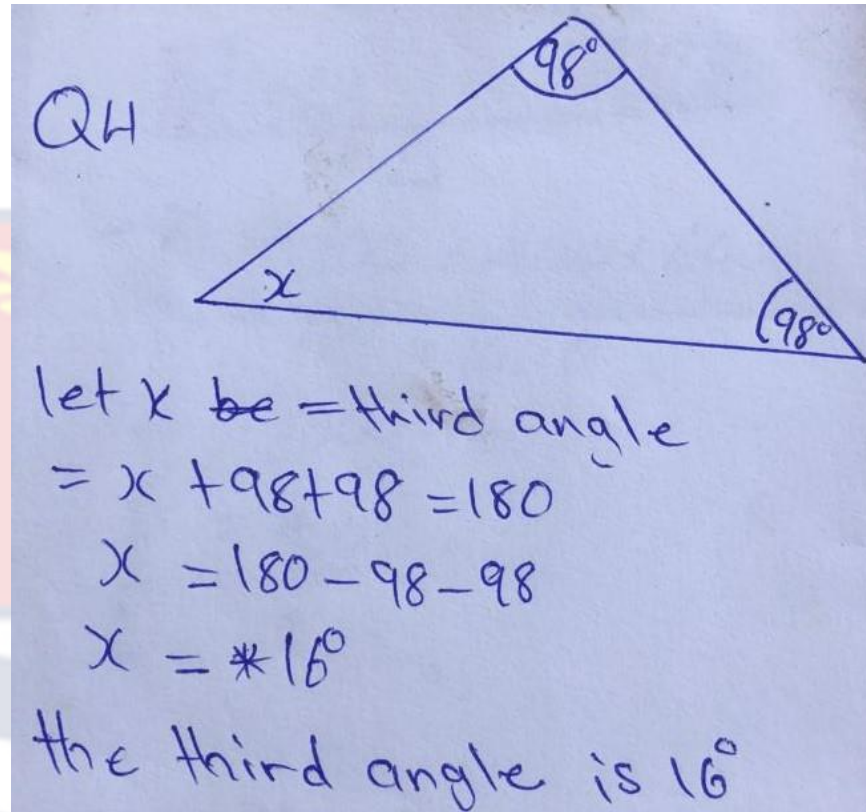 98°
Q4
x
98°
let x be = third angle
= x + 98 + 98 = 180
x = 180 - 98 - 98
x = * 16°
the third angle is 16°